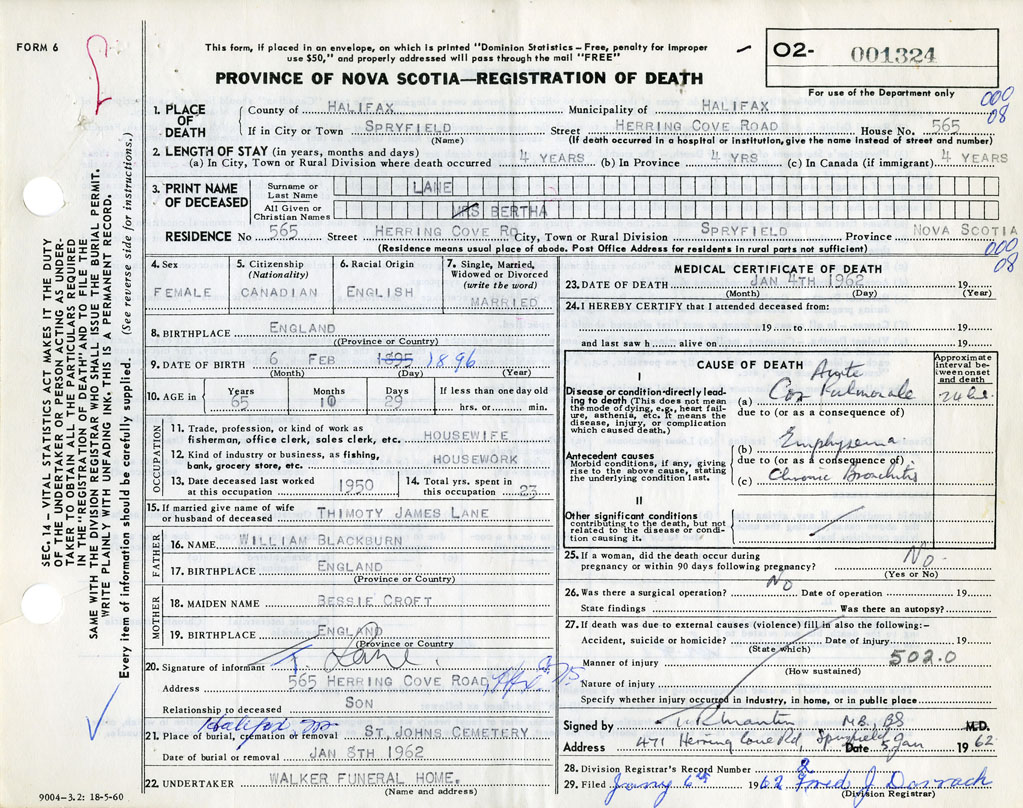 FORM 6
This form, if placed in an envelope, on which is printed "Dominion Statistics – Free, penalty for improper
use $50," and properly addressed will pass through the mail "FREE"
PROVINCE OF NOVA SCOTIA—REGISTRATION OF DEATH
O2- 001324
For use of the Department only
000
08
1. PLACE OF DEATH
County of HALIFAX Municipality of HALIFAX
If in City or Town SPRYFIELD Street HERRING COVE ROAD House No. 565
(Name) (If death occurred in a hospital or institution, give the name instead of street and number)
2. LENGTH OF STAY (in years, months and days)
(a) In City, Town or Rural Division where death occurred 4 YEARS (b) In Province 4 YRS (c) In Canada (if immigrant) 4 YEARS
3. PRINT NAME OF DECEASED
Surname or Last Name LANE
All Given or Christian Names MRS BERTHA
RESIDENCE No 565 Street HERRING COVE RD City, Town or Rural Division SPRYFIELD Province NOVA SCOTIA
(Residence means usual place of abode. Post Office Address for residents in rural parts not sufficient)
000
08
4. Sex
FEMALE
5. Citizenship
(Nationality)
CANADIAN
6. Racial Origin
ENGLISH
7. Single, Married,
Widowed or Divorced
(write the word)
MARRIED
8. BIRTHPLACE ENGLAND
(Province or Country)
9. DATE OF BIRTH 6 FEB 1895 1896
(Month) (Day) (Year)
10. AGE in
Years
65
Months
10
Days
29
If less than one day old
hrs. or min.
OCCUPATION
11. Trade, profession, or kind of work as
fisherman, office clerk, sales clerk, etc. HOUSEWIFE
12. Kind of industry or business, as fishing,
bank, grocery store, etc. HOUSEWORK
13. Date deceased last worked
at this occupation 1950
14. Total yrs. spent in
this occupation 23
15. If married give name of wife
or husband of deceased THIMOTY JAMES LANE
FATHER
16. NAME WILLIAM BLACKBURN
17. BIRTHPLACE ENGLAND
(Province or Country)
MOTHER
18. MAIDEN NAME BESSIE CROFT
19. BIRTHPLACE ENGLAND
(Province or Country)
20. Signature of informant T. Lane.
Address 565 HERRING COVE ROAD
Relationship to deceased SON
Halifax
21. Place of burial, cremation or removal ST, JOHNS CEMETERY
Date of burial or removal JAN 8TH 1962
22. UNDERTAKER WALKER FUNERAL HOME.
(Name and address)
9004–3.2: 18-5-60
MEDICAL CERTIFICATE OF DEATH
23. DATE OF DEATH JAN 4TH 1962 19
(Month) (Day) (Year)
24. I HEREBY CERTIFY that I attended deceased from:
19 to 19
and last saw h alive on 19
CAUSE OF DEATH
Approximate
interval be-
tween onset
and death
I
Disease or condition directly lead-
ing to death (This does not mean
the mode of dying, e.g., heart fail-
ure, asthenia, etc. It means the
disease, injury, or complication
which caused death.)
Acute
(a) Cor Pulmonale
due to (or as a consequence of)
Antecedent causes
Morbid conditions, if any, giving
rise to the above cause, stating
the underlying condition last.
(b) Emphysema
due to (or as a consequence of)
(c) Chronic Bronchitis
II
Other significant conditions
contributing to the death, but not
related to the disease or condi-
tion causing it.
25. If a woman, did the death occur during
pregnancy or within 90 days following pregnancy? No
(Yes or No)
26. Was there a surgical operation? No Date of operation 19
State findings Was there an autopsy?
27. If death was due to external causes (violence) fill in also the following:–
Accident, suicide or homicide? Date of injury 19
(State which)
Manner of injury 502.0
(How sustained)
Nature of injury
Specify whether injury occurred in industry, in home, or in public place
Signed by M.B. BS M.D.
Address 471 Herring Cove Rd, Spryfield Date 5 Jan 1962
28. Division Registrar's Record Number 2
29. Filed January 6th 1962 Fred J Darrach
(Division Registrar)
SEC. 14 – VITAL STATISTICS ACT MAKES IT THE DUTY
OF THE UNDERTAKER OR PERSON ACTING AS UNDER-
TAKER TO OBTAIN ALL THE PARTICULARS REQUIRED
IN THE "REGISTRATION OF DEATH" AND TO FILE THE
SAME WITH THE DIVISION REGISTRAR WHO SHALL ISSUE THE BURIAL PERMIT.
WRITE PLAINLY WITH UNFADING INK. THIS IS A PERMANENT RECORD.
Every item of information should be carefully supplied. (See reverse side for instructions.)